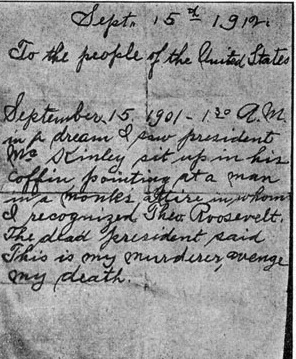 Sept. 15th 1912.
To the people of the United States
September 15, 1901 - 1:30 A.M.
in a dream I saw president
Mc Kinley sit up in his
coffin pointing at a man
in a monks attire in whom
I recognized Theo. Roosevelt.
The dead president said
This is my murderer, avenge
my death.